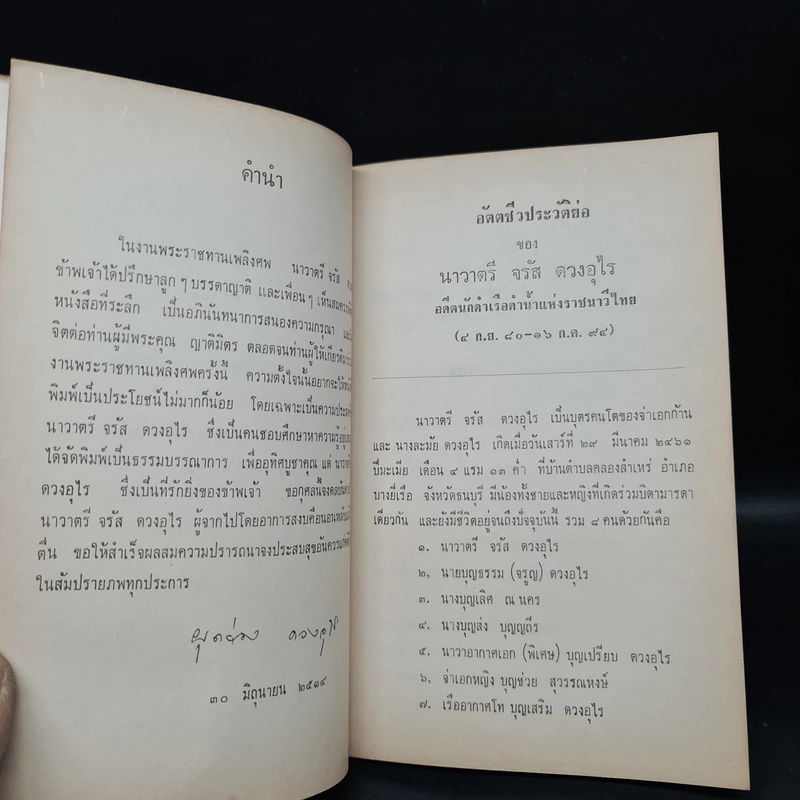 คำนำ
ในงานพระราชทานเพลิงศพ นาวาตรี จรัส
ข้าพเจ้าได้ปรึกษาลูก ๆ บรรดาญาติ และเพื่อน ๆ เห็นสมควร
หนังสือที่ระลึก เป็นอภินันทนาการสนองความกรุณา
จิตต่อท่านผู้มีพระคุณ ญาติมิตร ตลอดจนท่านผู้ให้เกียรติ
งานพระราชทานเพลิงศพครั้งนี้ ความตั้งใจนั้นอยากจะให้
พิมพ์เป็นประโยชน์ไม่มากก็น้อย โดยเฉพาะเป็นความ
นาวาตรี จรัส ดวงอุไร ซึ่งเป็นคนชอบศึกษาหาความรู้
ได้จัดพิมพ์เป็นธรรมบรรณาการ เพื่ออุทิศบูชาคุณ แด่
ดวงอุไร ซึ่งเป็นที่รักยิ่งของข้าพเจ้า ขอกุศลนี้จง
นาวาตรี จรัส ดวงอุไร ผู้จากไปโดยอาการสงบคือนอนหลับ
ตื่น ขอให้สำเร็จผลสมความปรารถนาจงประสบสุข
ในสัมปรายภพทุกประการ
ดวงอุไร
๓๐ มิถุนายน ๒๕๑๔
อัตตชีวประวัติย่อ
ของ
นาวาตรี จรัส ดวงอุไร
อดีตนักดำเรือดำน้ำแห่งราชนาวีไทย
(๔ ก.ย. ๘๐-๑๖ ก.ค. ๙๔)
นาวาตรี จรัส ดวงอุไร เป็นบุตรคนโตของจ่าเอกก้าน
และ นางละมัย ดวงอุไร เกิดเมื่อวันเสาร์ที่ ๒๙ มีนาคม ๒๔๖๑
ปีมะเมีย เดือน ๔ แรม ๑๓ ค่ำ ที่บ้านตำบลคลองสำเหร่ อำเภอ
บางยี่เรือ จังหวัดธนบุรี มีน้องทั้งชายและหญิงที่เกิดร่วมบิดามารดา
เดียวกัน และยังมีชีวิตอยู่จนถึงปัจจุบันนี้ รวม ๘ คนด้วยกันคือ
๑. นาวาตรี จรัส ดวงอุไร
๒. นายบุญธรรม (จรูญ) ดวงอุไร
๓. นางบุญเลิศ ณ นคร
๔. นางบุญส่ง บุญญถีร
๕. นาวาอากาศเอก (พิเศษ) บุญเปรียบ ดวงอุไร
๖. จ่าเอกหญิง บุญช่วย สุวรรณหงษ์
๗. เรืออากาศโท บุญเสริม ดวงอุไร